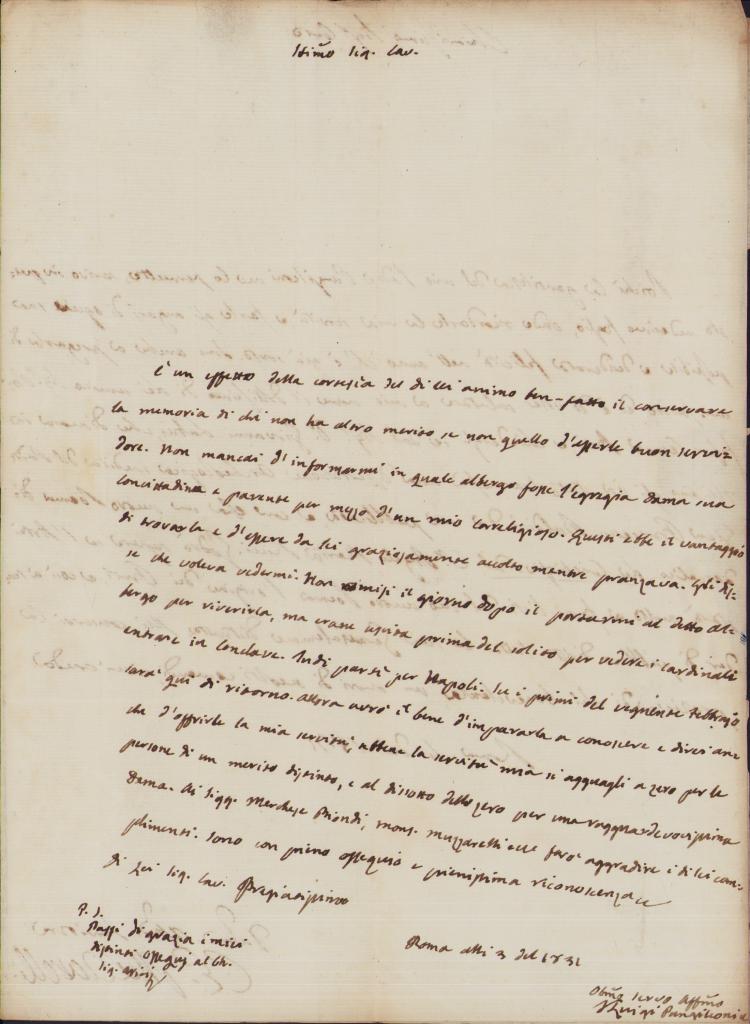 Stimo Sig. Cav.
È un effetto della cortesia del di lei animo ben-fatto il conservare
la memoria di chi non ha altro merito se non quello d'esserle buon servi-
dore. Non mancai d'informarmi in quale albergo fosse l'egregia Dama sua
concittadina e parente per mezzo d'un mio correligioso. Questi ebbe il vantaggio
di trovarla e d'essere da lei graziosamente accolto mentre pranzava. Gli dis-
se che voleva vedermi. Non omisi il giorno dopo il portarmi al detto al-
bergo per riverirla, ma erane uscita prima del solito per vedere i Cardinali
entrare in Conclave. Indi partì per Napoli. Se i primi del vegnente Febbrajo
sarà qui di ritorno. Allora avrò il bene d'impararla a conoscere e direi an-
che d'offrirle la mia servitù, abbenc la servitù mia si agguagli a zero per le
persone di un merito distinto, e al dissotto dello zero per una ragguardevolissima
Dama. Ai Sigg. Marchese Biondi, Mons. Muzzarelli farò aggradire i di lei com-
plimenti. Sono con pieno ossequio e pienissima riconoscenza
di Lei Sig. Cav. Pregiatissimo
P. S.
Passi di grazia i miei
distinti ossequj al Ch.
Sig.
Roma alli 3 del 1831
Obbmo Servo Affmo
Luigi Pungileoni